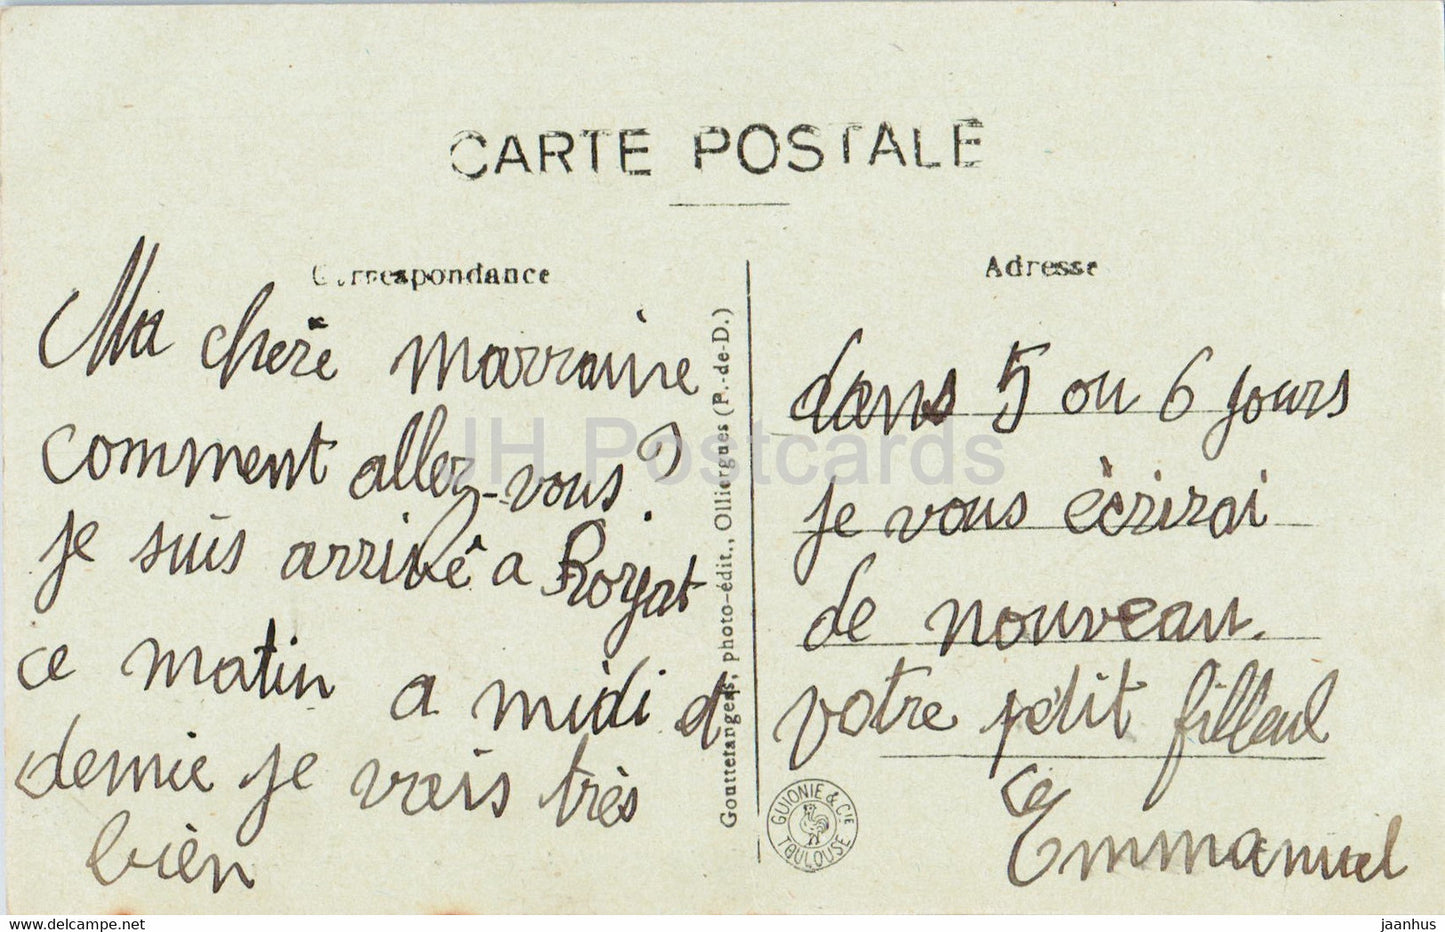 CARTE POSTALE
Correspondance
Ma chère marraine
comment allez-vous?
je suis arrivê a Royat
ce matin a midi et
demie je vais très
bien
Gouttefangeas, photo-édit., Olliergues (P.-de-D.)
Adresse
dans 5 ou 6 jours
je vous ècrirai
de nouveau.
votre petit filleul
Emmanuel
GUIONIE & CIE
TOULOUSE
JH Postcards
www.delcampe.net
jaanhus